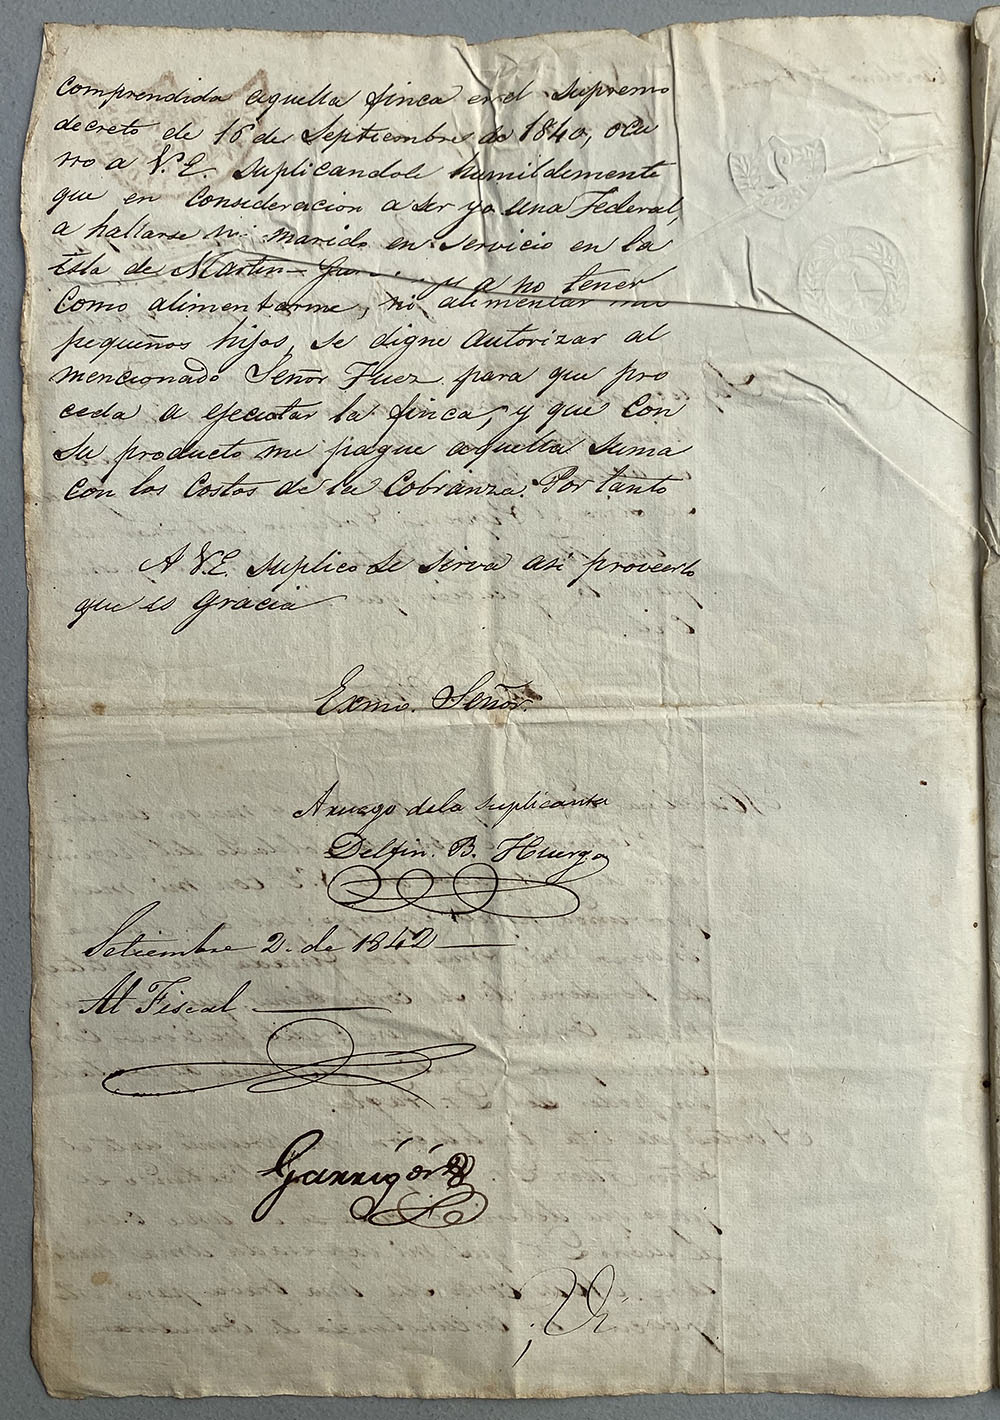 comprendida aquella finca en el Supremo
decreto de 16 de Septiembre de 1840, ocu
rro a V.E. suplicandole humildemente
que en consideracion a ser yo una Federal,
a hallarse mi marido en servicio en la
Isla de Martin y a no tener
como alimentarme, ni alimentar mis
pequeños hijos, se digne autorizar al
mencionado Señor Juez para que pro
ceda a ejecutar la finca, y que con
su producto me pague aquella suma
con los costos de la cobranza. Por tanto
A V.E. suplico se sirva asi proveerlo
que es gracia
Exmo. Señor.
A ruego dela suplicante
Delfin. B. Huergo
Setiembre 2. de 1842
Al Fiscal
Garrigós